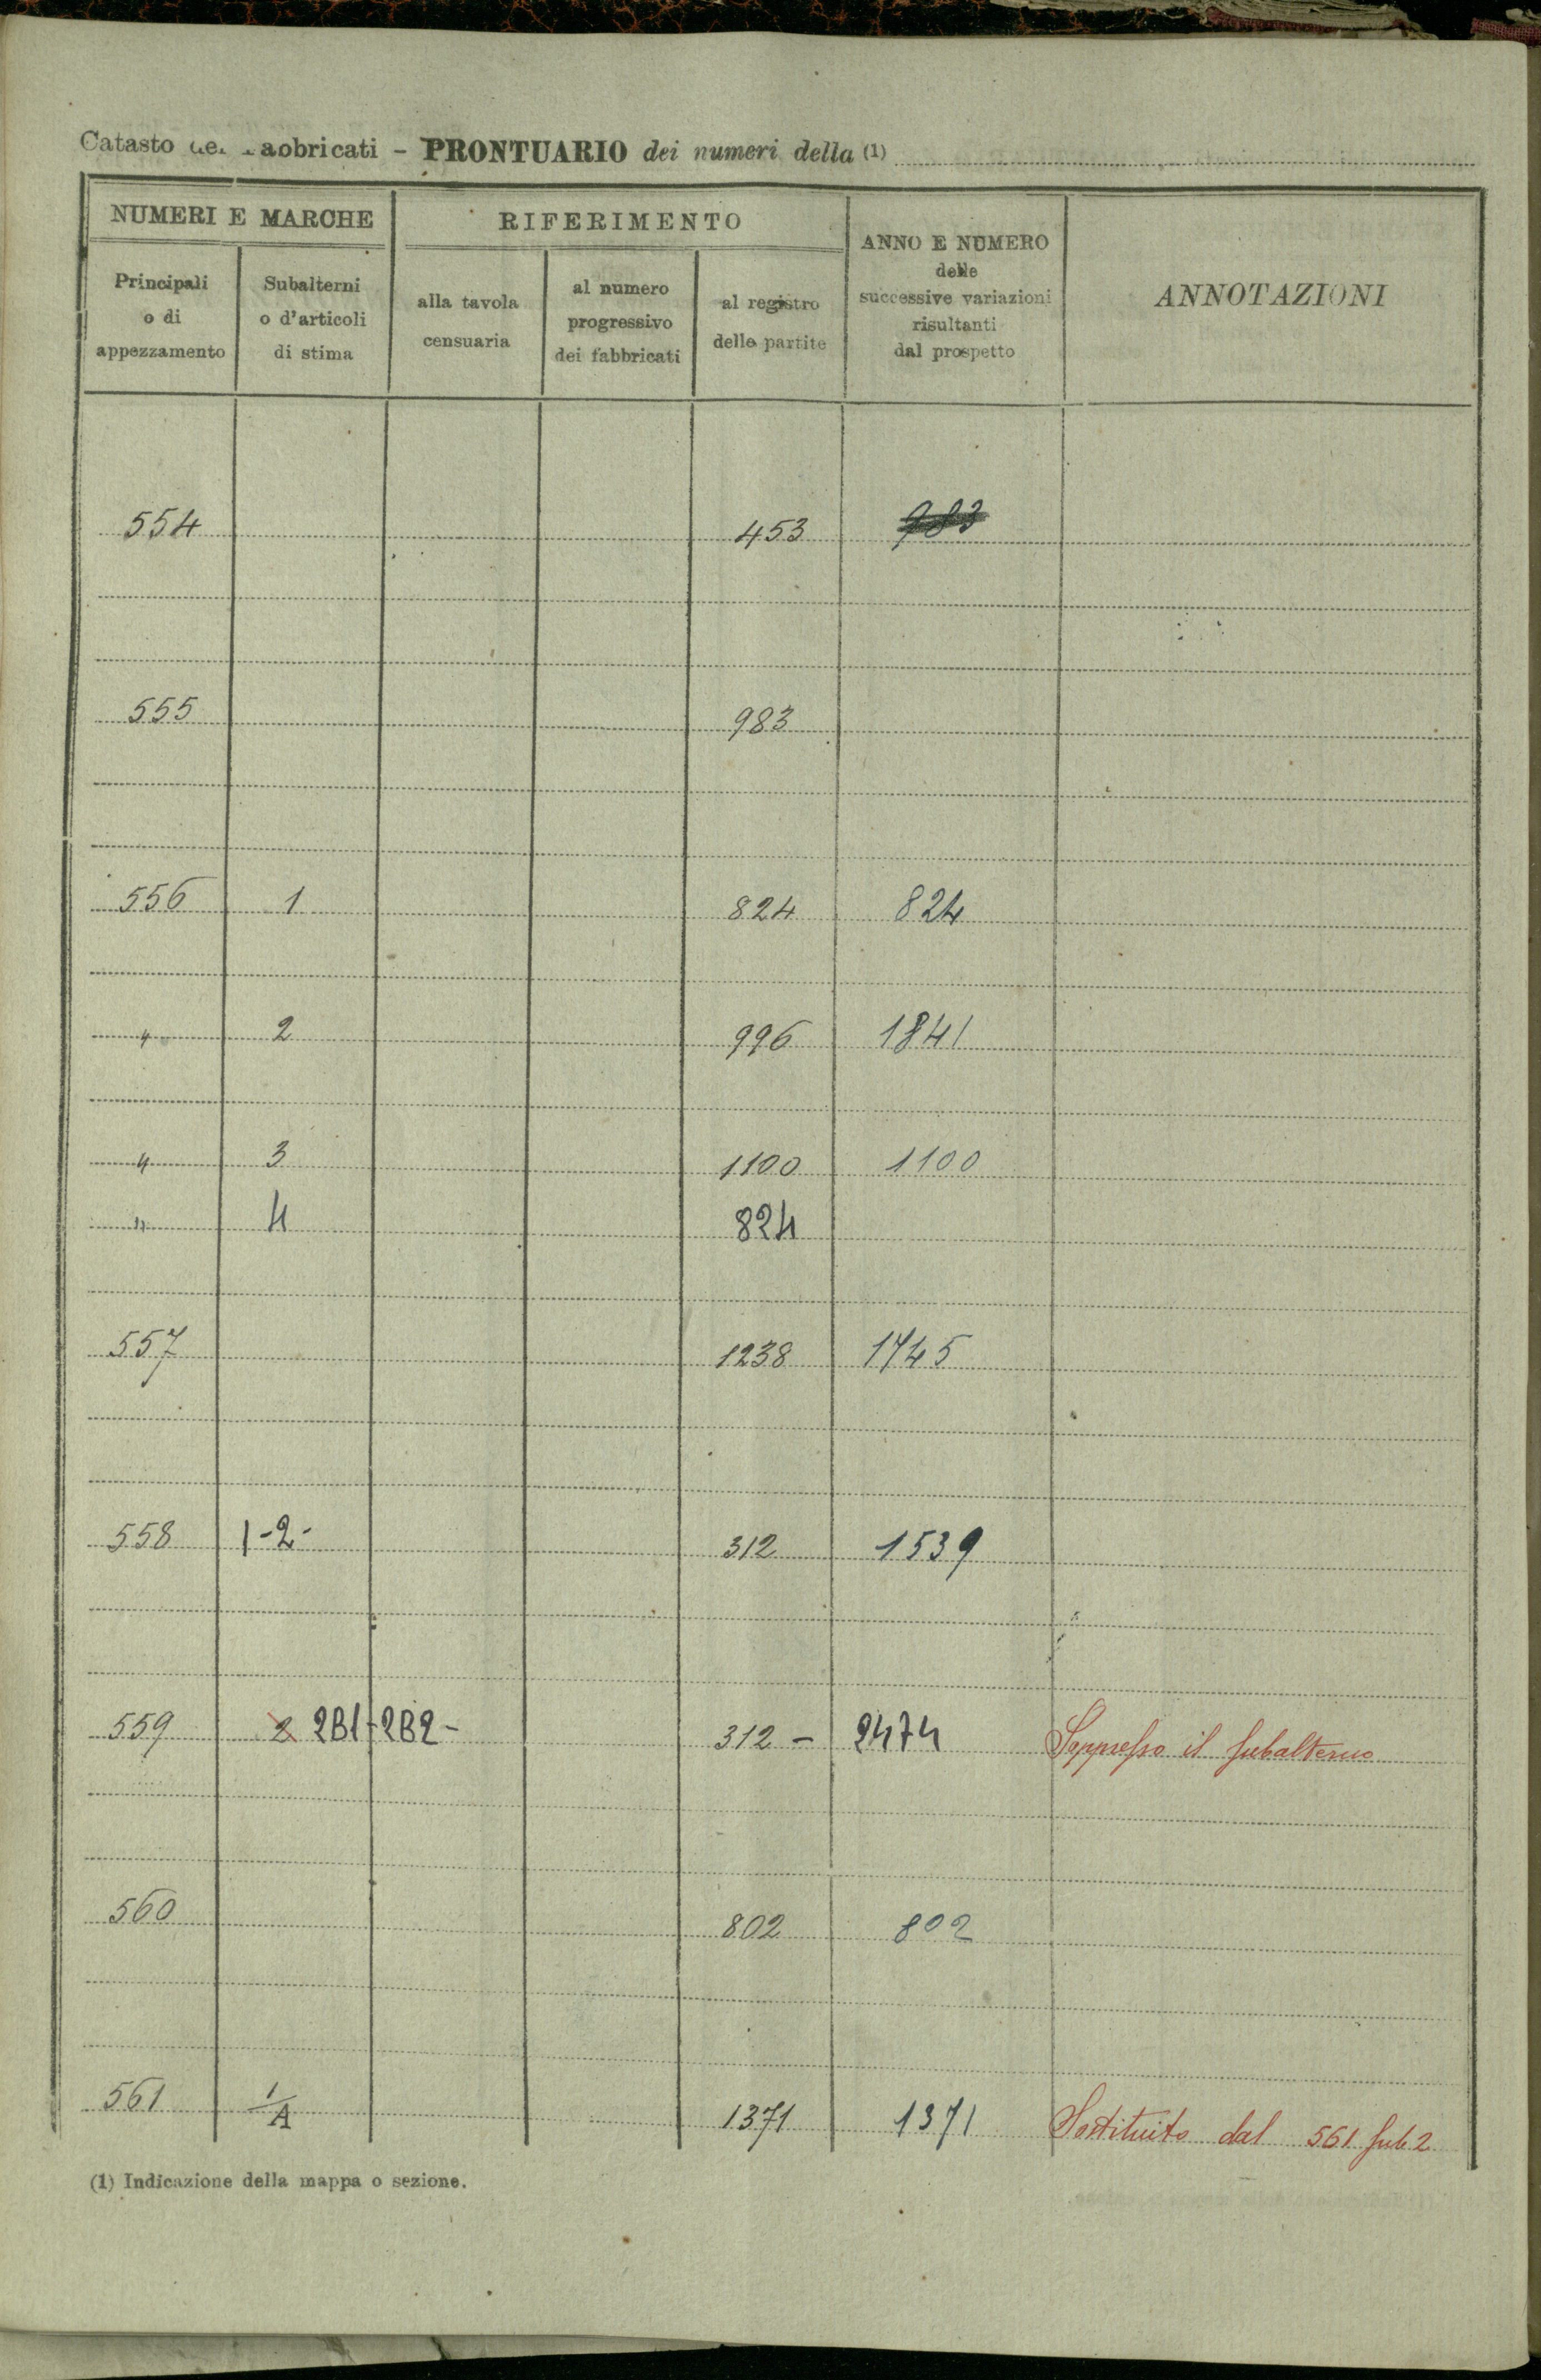 Catasto dei Fabbricati - PRONTUARIO dei numeri della (1)
NUMERI E MARCHE
RIFERIMENTO
ANNO E NUMERO
delle
successive variazioni
risultanti
dal prospetto
ANNOTAZIONI
Principali
o di
appezzamento
Subalterni
o d'articoli
di stima
alla tavola
censuaria
al numero
progressivo
dei fabbricati
al registro
delle partite
554 453 983
555 983
556 1 824 824
" 2 996 1841
" 3 1100 1100
" 4 824
557 1238 1745
558 1-2- 312 1539
559 2 2B1-2B2- 312 - 2474 Soppresso il subalterno
560 802 802
561 1/A 1371 1371 Sostituito dal 561 sub 2
(1) Indicazione della mappa o sezione.